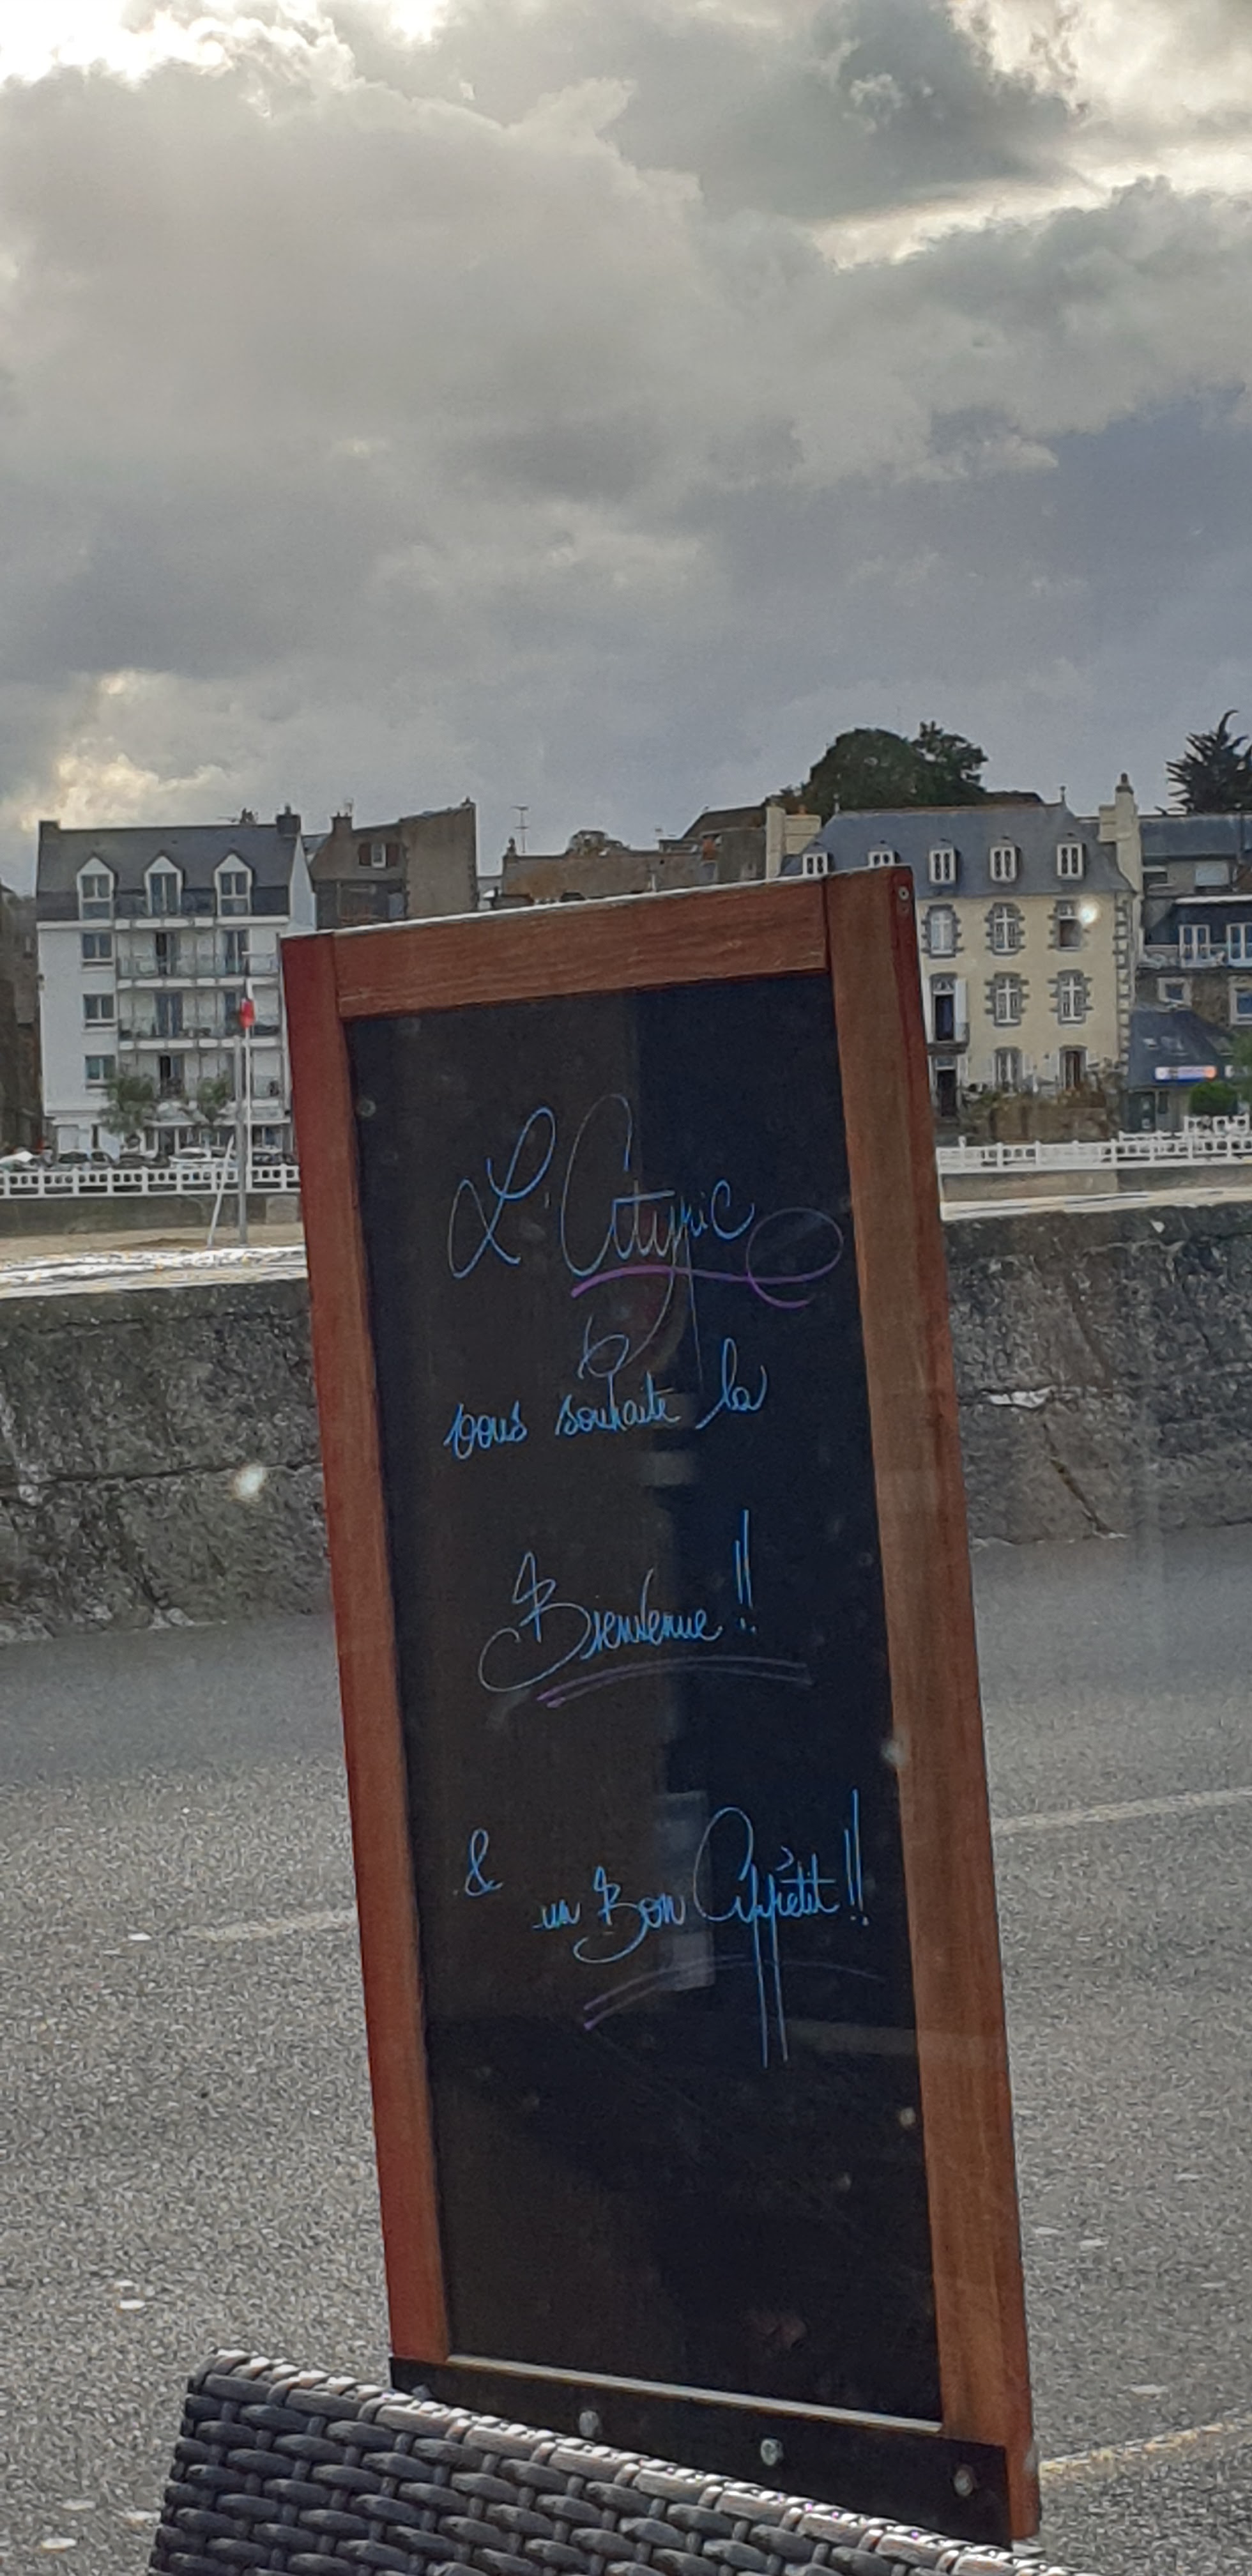 L'Atypic
vous souhaite la
Bienvenue !!
&
un Bon Appétit !!